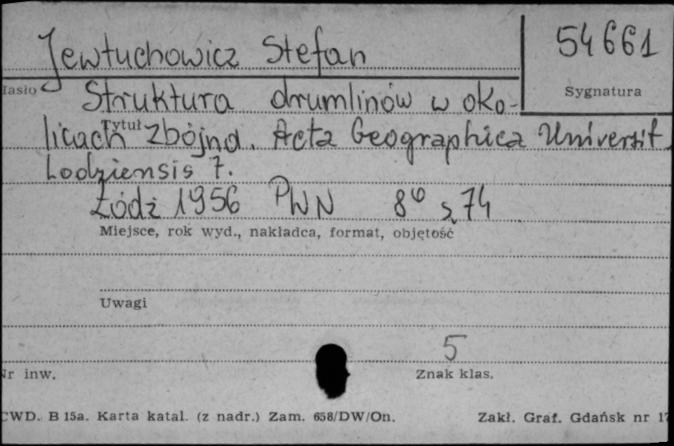 Jewtuchowicz Stefan
54661
Hasło
Sygnatura
Struktura drumlinów w oko-
Tytuł
licach Zbójna. Acta Geographica Universit.
Lodziensis 7.
Łódź 1956 PWN 8° s. 74
Miejsce, rok wyd., nakładca, format, objętość
Uwagi
5
Nr inw.
Znak klas.
CWD. B 15a. Karta katal. (z nadr.) Zam. 658/DW/On.
Zakł. Graf. Gdańsk nr 17